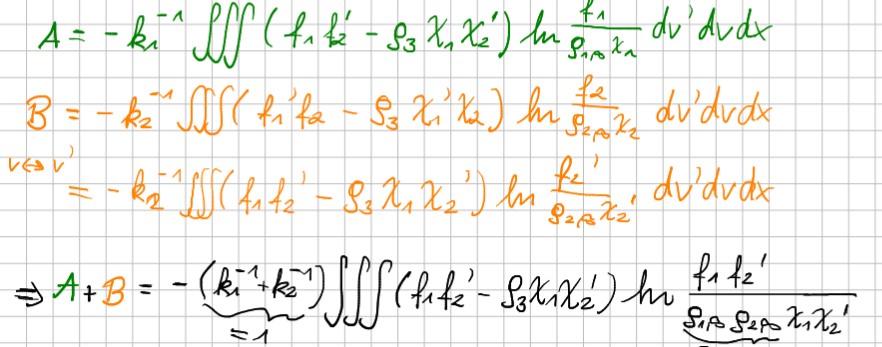 A = - k₁⁻¹ ∭ ( f₁ f₂' - ρ₃ χ₁ χ₂' ) ln f₁ / (ρ₁,∞ χ₁) dv' dv dx
B = - k₂⁻¹ ∭ ( f₁' f₂ - ρ₃ χ₁' χ₂ ) ln f₂ / (ρ₂,∞ χ₂) dv' dv dx
v↔v' = - k₂⁻¹ ∭ ( f₁ f₂' - ρ₃ χ₁ χ₂' ) ln f₂' / (ρ₂,∞ χ₂') dv' dv dx
⇒ A + B = - (k₁⁻¹ + k₂⁻¹) ∭ ( f₁ f₂' - ρ₃ χ₁ χ₂' ) ln f₁ f₂' / (ρ₁,∞ ρ₂,∞ χ₁ χ₂')
= 1